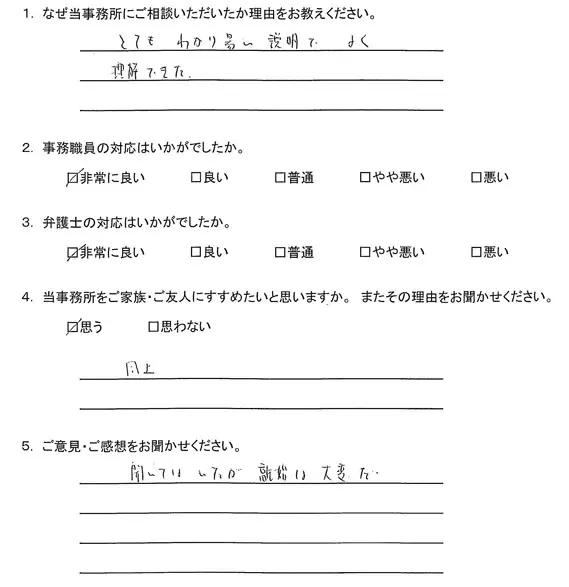 1. なぜ当事務所にご相談いただいたか理由をお教えください。
とても わかり易い 説明で よく
理解できた.
2. 事務職員の対応はいかがでしたか。
☑非常に良い □良い □普通 □やや悪い □悪い
3. 弁護士の対応はいかがでしたか。
☑非常に良い □良い □普通 □やや悪い □悪い
4. 当事務所をご家族・ご友人にすすめたいと思いますか。 またその理由をお聞かせください。
☑思う □思わない
同上
5. ご意見・ご感想をお聞かせください。
聞いてはいたが 離婚は 大変だ.